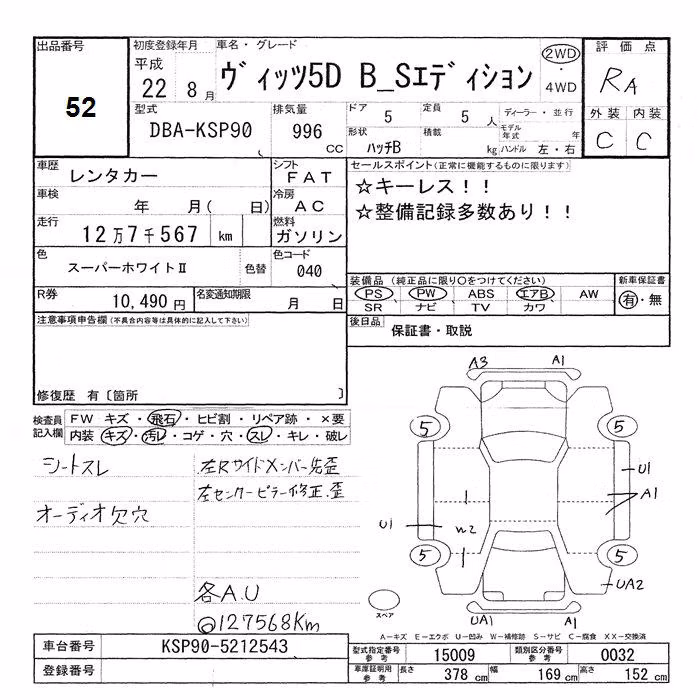 出品番号
52
初度登録年月
平成
22 8 月
車名・グレード
ヴィッツ5D B_Sエディション
2WD
・
4WD
評価点
RA
外装 内装
C C
型式
DBA-KSP90
排気量
996
CC
ドア
5
定員
5 人
形状
ハッチB
積載
kg
ディーラー・並行
モデル年式 年
ハンドル 左・右
車歴
レンタカー
シフト
FAT
車検
年 月( 日)
冷房
AC
走行
12万7千567 km
燃料
ガソリン
色
スーパーホワイトⅡ
色替
色コード
040
R券
10,490 円
名変通知期限
月 日
セールスポイント(正常に機能するものに限ります)
☆キーレス!!
☆整備記録多数あり!!
装備品(純正品に限り○をつけてください)
PS PW ABS エアB AW
SR ナビ TV カワ
新車保証書
有・無
後日品
保証書・取説
注意事項申告欄(不具合内容等は具体的に記入して下さい)
修復歴 有〔箇所 〕
検査員
記入欄
FW キズ・飛石・ヒビ割・リペア跡・×要
内装 キズ・汚レ・コゲ・穴・スレ・キレ・破レ
シートスレ
オーディオ欠穴
左Rサイドメンバー先歪
左センターピラー修正.歪
各A.U
◎127568Km
A3 A1
5 5
U1
1 A1
U1 W2
1
5 5
UA2
UA1 A1
スペア
A-キズ E-エクボ U-凹み W-補修跡 S-サビ C-腐食 XX-交換済
車台番号
KSP90-5212543
登録番号
型式指定番号
参考
15009
類別区分番号
参考
0032
車庫証明用
参考
長さ 378 cm 幅 169 cm 高さ 152 cm